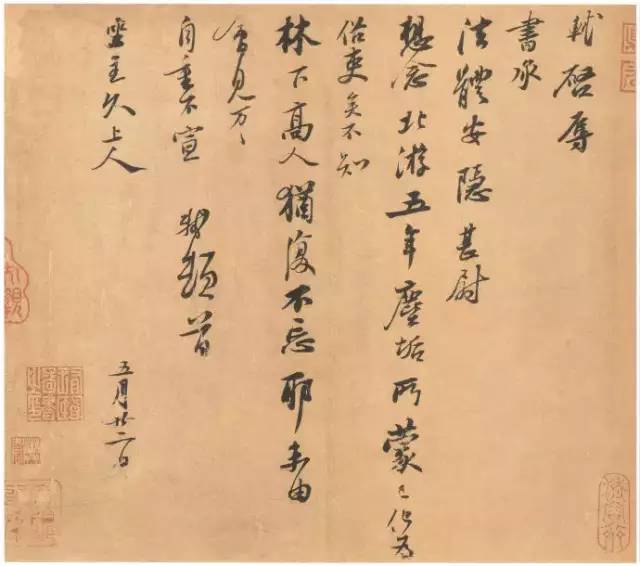 軾啓辱
書承
法體安隱甚尉
想念北游五年塵垢所蒙已化為
俗吏矣不知
林下高人猶復不忘耶未由
會見万〻
自重不宣 軾頓首
坐主久上人
五月廿二日